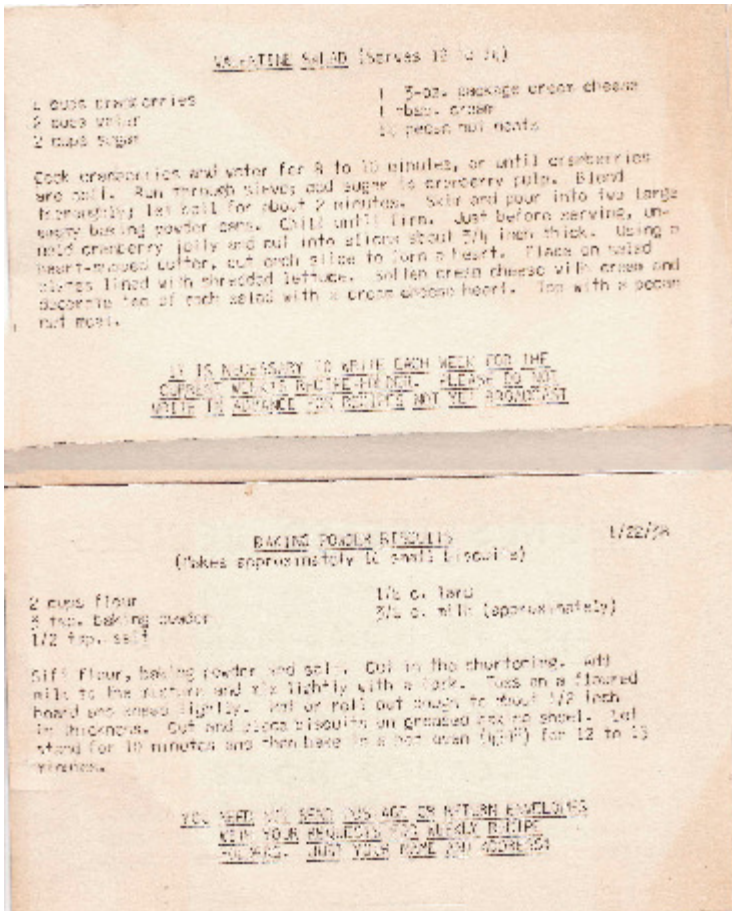 VALENTINE SALAD (Serves 12 to
cups cranberries
2 cups water
2 cups sugar
1 3-oz. package cream cheese
1 tbsp. cream
pecan nut meats
Cook cranberries and water for 8 to 10 minutes, or until cranberries
are soft. Run through sieve; add sugar to cranberry pulp. Blend
thoroughly; let boil for about 2 minutes. Skim and pour into two large
empty baking powder cans. Chill until firm. Just before serving, un-
mold cranberry jelly and cut into slices about 3/4 inch thick. Using a
heart-shaped cutter, cut each slice to form a heart. Place on salad
plates lined with shredded lettuce. Soften cream cheese with cream and
decorate top of each salad with a cream cheese heart. Top with a pecan
nut meat.
IT IS NECESSARY TO WRITE EACH WEEK FOR THE
CURRENT WEEK'S RECIPE FOLDER. PLEASE DO NOT
WRITE IN ADVANCE FOR RECIPES NOT YET BROADCAST
1/22/38
BAKING POWDER BISCUITS
(Makes approximately small biscuits)
2 cups flour
3 tsp. baking powder
1/2 tsp. salt
c. lard
c. milk (approximately)
Sift flour, baking powder and salt. Cut in the shortening. Add
milk to the mixture and mix lightly with a fork. Toss on a floured
board and knead lightly. Pat or roll out dough to about 1/2 inch
in thickness. Cut and place biscuits on greased baking sheet. Let
stand for 10 minutes and then bake in a hot oven for 12 to 15
minutes.
YOU NEED NOT SEND POSTAGE OR RETURN ENVELOPES
WITH YOUR REQUESTS FOR WEEKLY RECIPE
FOLDERS. JUST YOUR NAME AND ADDRESS!